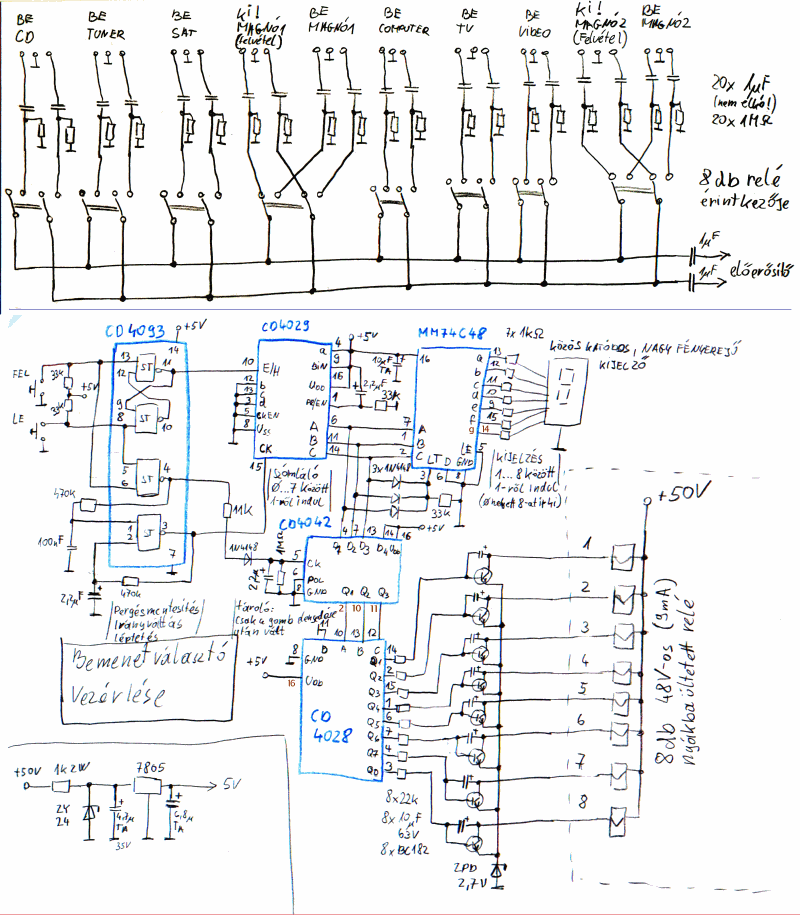 BE CD
BE TUNER
BE SAT
Ki! MAGNÓ1 (felvétel)
BE MAGNÓ1
BE COMPUTER
BE TV
BE VIDEO
Ki! MAGNÓ2 (Felvétel)
BE MAGNÓ2
20x 1µF
(nem elkó!)
20x1MΩ
8 db relé
érintkezője
1µF
1µF
előerősítő
CD4093
+5V
CD4029
+5V
MM74C48
7x1kΩ
KÖZÖS KATÓDOS, NAGY FÉNYEREJŰ
KIJELZŐ
FEL
33k
+5V
33k
LE
13
12
14
11
9
8
10
5
6
4
1
2
3
7
ST
ST
ST
ST
470k
100nF
2,2µF
470k
10
E/H
12
b
13
c
3
d
5
CKEN
8
USS
CK
15
a
4
BiN
9
UDD
16
PR/EN
1
A
6
B
11
C
14
10µF
TA
2,2µF
33k
16
7
A
1
B
2
C
LT D GND
LE
3
6
8
5
a
13
b
12
c
11
d
10
e
9
f
15
g
14
3x1N4148
33k
+5V
Számláló
0...7 között
1-ről indul
KIJELZÉS
1...8 között
1-ről indul
(0 helyett 8-at ír ki)
11k
1N4148
2,2µ
1MΩ
CD4042
4
7
13
14
16
D1 D2 D3 D4 UDD
5
CK
6
POL
8
GND
Q1 Q2 Q3
2
10
11
Pergésmentesítés
Irányváltás
léptetés
tároló:
Csak a gomb elengedése
után vált
Bemenetválasztó
Vezérlése
+5V
11
10
13
12
D A B C
8
GND
16
UDD
CD
4028
Q1
14
Q2
2
Q3
15
Q4
1
Q5
6
Q6
7
Q7
4
Q0
3
8x22k
8x10µF
63V
8xBC182
ZPD
2,7V
+50V
1
2
3
4
5
6
7
8
8db 48V-os (9mA)
nyákba ültetett relé
+50V
1k2W
7805
5V
ZY
24
4,7µ
TA
35V
6,8µ
TA